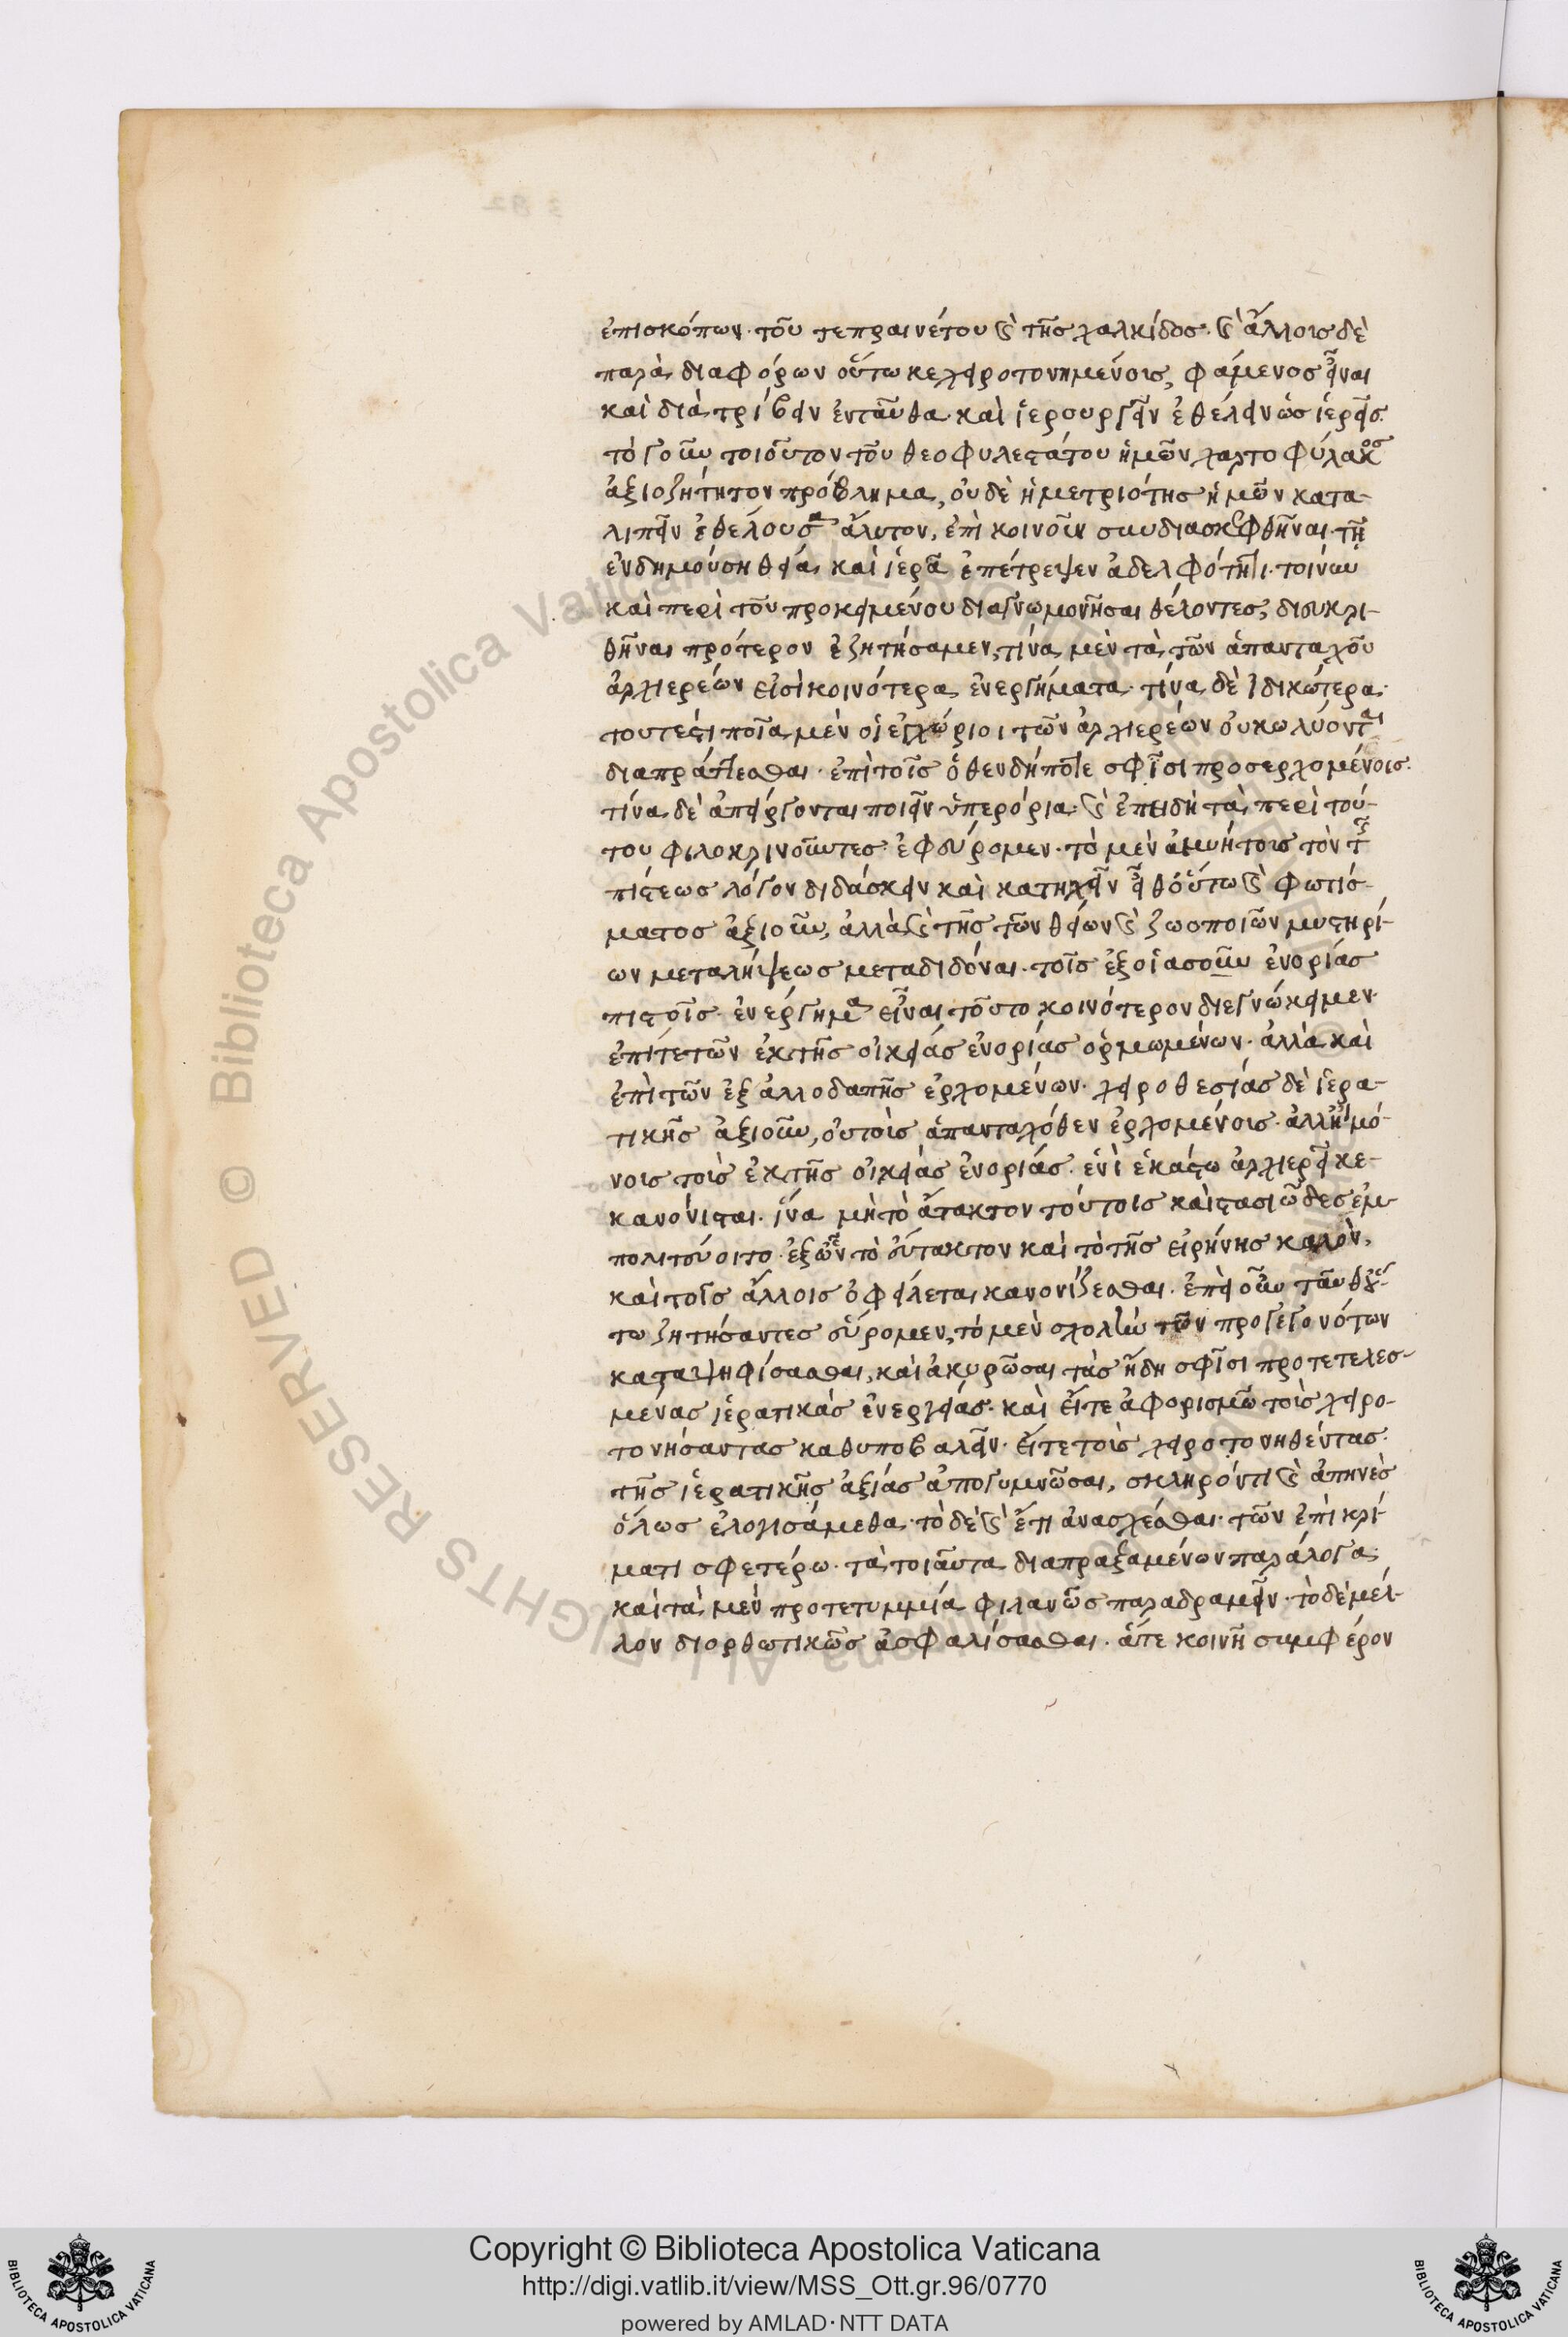 ἐπισκόπων· τοῦ τε πραινέτου καὶ τῆς χαλκίδος· καὶ ἄλλοις δὲ
παρὰ διαφόρων οὕτω κεχειροτονημένοις, φάμενος εἶναι
καὶ διατρίβειν ἐνταῦθα καὶ ἱερουργεῖν ἐθέλειν ὡς ἱερεῖς.
τὸ γοῦν τοιοῦτον τοῦ θεοφιλεστάτου ἡμῶν χαρτοφύλακος
ἀξιοζήτητον πρόβλημα, οὐδὲ ἡ μετριότης ἡμῶν κατα-
λιπεῖν ἐθέλουσα ἄλυτον, ἐπὶ κοινοῦν συνδιασκεφθῆναι τῇ
ἐνδημούσῃ θεία καὶ ἱερᾶ ἐπέτρεψεν ἀδελφότητι· τοίνυν
καὶ περὶ τοῦ προκειμένου διαγνωμονῆσαι θέλοντες, διευκρι-
θῆναι πρότερον ἐζητήσαμεν, τίνα μὲν τὰ τῶν ἁπανταχοῦ
ἀρχιερέων εἰσὶ κοινότερα ἐνεργήματα· τίνα δὲ ἰδικώτερα·
τουτέστι ποῖα μὲν οἱ ἐγχώριοι τῶν ἀρχιερέων οὐ κωλύονται
διαπράττεσθαι· ἐπὶ τοῖς ὅθεν δήποτε σφίσι προσερχομένοις·
τίνα δὲ ἀπείργονται ποιεῖν ὑπερόρια· καὶ ἐπειδὴ τὰ περὶ τού-
του φιλοκρινοῦντες ἐφεύρομεν· τὸ μὲν ἀμυήτοις τὸν τῆς
πίστεως λόγον διδάσκειν καὶ κατηχεῖν εἶθ' οὕτω καὶ φωτίσ-
ματος ἀξιοῦν, ἀλλὰ καὶ τῆς τῶν θείων καὶ ζωοποιῶν μυστηρί-
ων μεταλήψεως μεταδιδόναι· τοῖς ἐξ οἱασοῦν ἐνορίας
πιστοῖς· ἐνέργημα εἶναι τοῦτο κοινότερον διεγνώκειμεν·
ἐπί τε τῶν ἐκ τῆς οἰκείας ἐνορίας ὁρμωμένων· ἀλλὰ καὶ
ἐπὶ τῶν ἐξ ἀλλοδαπῆς ἐρχομένων· χειροθεσίας δὲ ἱερα-
τικῆς ἀξιοῦν, οὐ τοῖς ἁπανταχόθεν ἐρχομένοις· ἀλλ' ἢ μό-
νοις τοῖς ἐκ τῆς οἰκείας ἐνορίας· ἑνὶ ἑκάστω ἀρχιερεῖ κε-
κανόνισται· ἵνα μὴ τὸ ἄτακτον τούτοις καὶ στασιῶδες ἐμ-
πολιτεύοιτο· ἐξ ὧν τὸ εὔτακτον καὶ τὸ τῆς εἰρήνης καλὸν,
καὶ τοῖς ἄλλοις ὀφείλεται κανονίζεσθαι· ἐπεὶ οὖν
ζητήσαντες εὕρομεν, τὸ μὲν σχολὴν τῶν προγεγονότων
καταψηφίσασθαι, καὶ ἀκυρῶσαι τὰς ἤδη σφίσι προτετελεσ-
μένας ἱερατικὰς ἐνεργείας· καὶ εἴτε ἀφορισμῶ τοὺς χειρο-
τονήσαντας καθυποβαλεῖν· εἴτε τοὺς χειροτονηθέντας
τῆς ἱερατικῆς ἀξίας ἀπογυμνῶσαι, σκληρόν τι καὶ ἀπηνὲς
ὅλως ἐλογισάμεθα· τὸ δὲ καὶ ἔτι ἀνασχέσθαι τῶν ἐπὶ κρί-
ματι σφετέρω· τὰ τοιαῦτα διαπραξαμένων παράλογα·
καὶ τὰ μὲν φιλανῶς παραδραμεῖν· τὸ δὲ μέλ-
λον διορθωτικῶς ἀσφαλίσασθαι· ἅτε κοινῇ συμφέρον